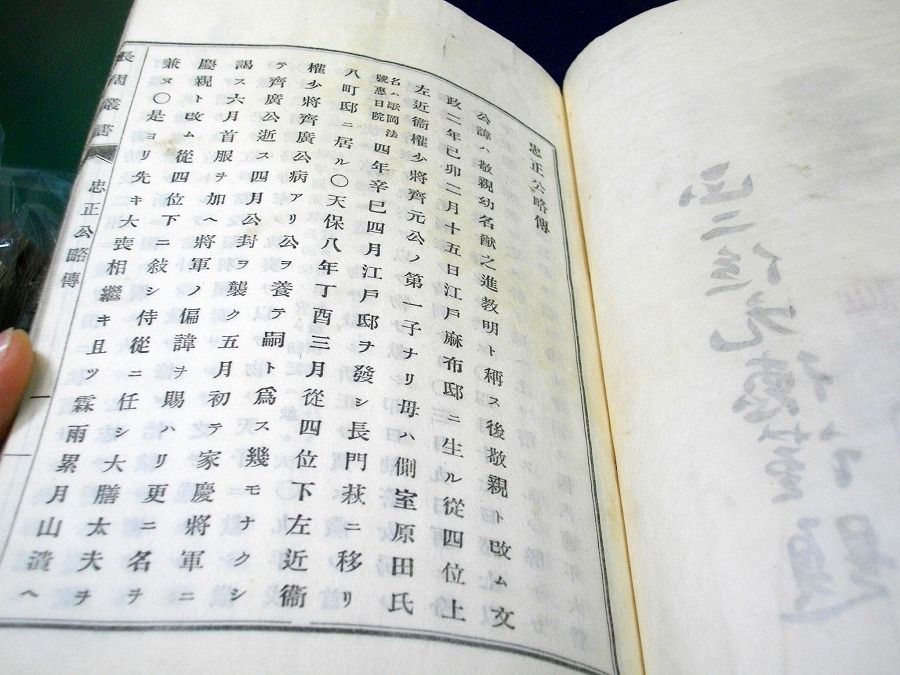 忠正公略傳
公諱ハ敬親幼名猷之進敎明ト稱ス後敬親ト改ム文
政二年己卯二月十五日江戸麻布邸ニ生ル從四位上
左近衞權少將齊元公ノ第一子ナリ母ハ側室原田氏
名ハ歌岡法
號惠日院
四年辛巳四月江戸邸ヲ發シ長門萩ニ移リ
八町邸ニ居ル〇天保八年丁酉三月從四位下左近衞
權少將齊廣公病アリ公ヲ養テ嗣ト爲ス幾モナクシ
テ齊廣公逝ス四月公封ヲ襲ク五月初テ家慶將軍ニ
謁ス六月首服ヲ加ヘ將軍ノ偏諱ヲ賜ハリ更ニ名ヲ
慶親ト改ム從四位下ニ敍シ侍從ニ任シ大膳太夫ヲ
兼ヌ〇是ヨリ先キ大喪相繼キ且ツ霖雨累月山潰ヘ
長周叢書
忠正公略傳